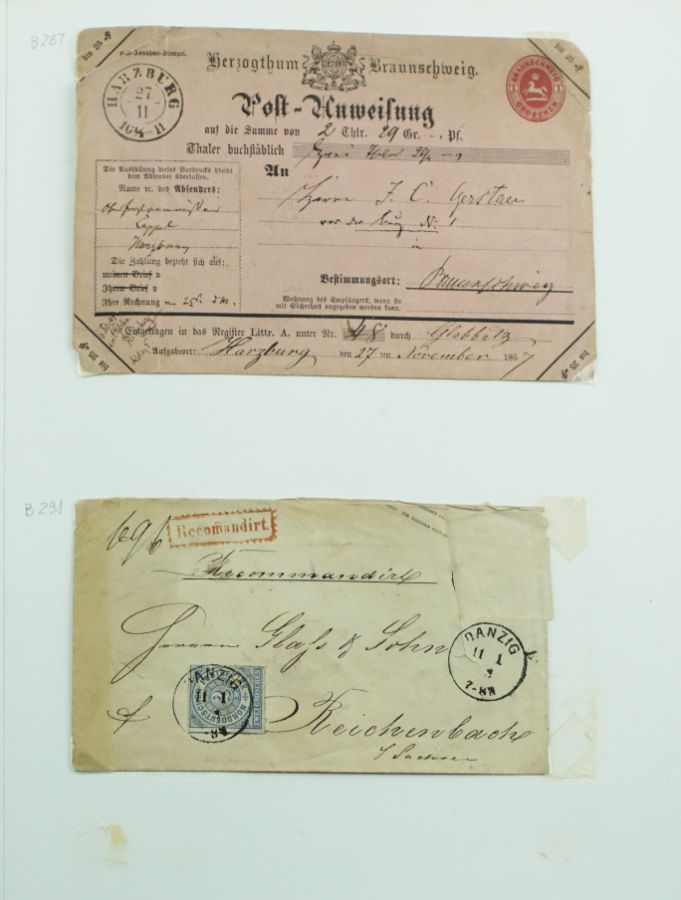 B 287
bis 25 ₰
bis 25 ₰
Post-Annahme-Stempel.
Herzogthum Braunschweig.
HARZBURG
27
11
10½-11
BRAUNSCHWEIG
1 1
GROSCHEN
Post-Anweisung
auf die Summe von 2 Thlr. 29 Gr. -. Pf.
Thaler buchstäblich
An
Die Ausfüllung dieses Vordrucks bleibt
dem Absender überlassen.
Name ꝛc. des Absenders:
Cappel
Harzburg
Die Zahlung bezieht sich auf:
meinen Brief v
Ihren Brief v
Ihre Rechnung
Herrn J. C. Gerstäcker
vor der Burg № 1
in
Bestimmungsort: Braunschweig
Wohnung des Empfängers, wenn sie
mit Sicherheit angegeben werden kann.
Eingetragen in das Register Littr. A. unter Nr. 48 durch
Aufgabeort: Harzburg den 27 ten November 1867
bis 25 ₰
bis 25 ₰
B 291
696
Recomandirt.
Recommandirt
Herren Glass & Sohn
DANZIG
11 1
7-8N
DANZIG
11 1
NORDDEUTSCHER
ZWEI GROSCHEN
Reichenbach
i/ Sachsen